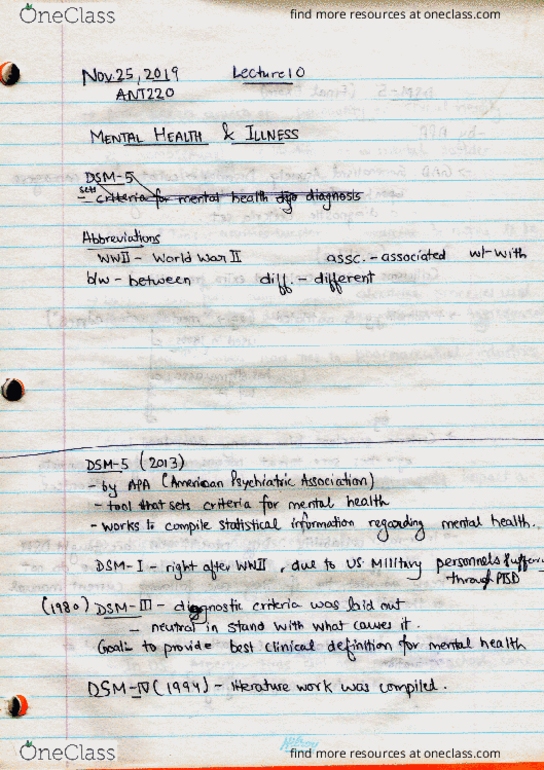 OneClass
find more resources at oneclass.com
Nov. 25, 2019 Lecture 10
ANT220
MENTAL HEALTH & ILLNESS
DSM-5
sets
- criteria for mental health diagnosis
Abbreviations
WWII - World War II assc. - associated w/- with
b/w - between diff. - different
DSM-5 (2013)
- by APA (American Psychiatric Association)
- tool that sets criteria for mental health
- works to compile statistical information regarding mental health.
DSM-I - right after WWII, due to US Military personnels suffer
through PTSD
(1980) DSM-III - diagnostic criteria was laid out
- neutral in stand with what causes it.
Goal:- to provide best clinical definition for mental health
DSM-IV (1994) - literature work was compiled.
OneClass
find more resources at oneclass.com